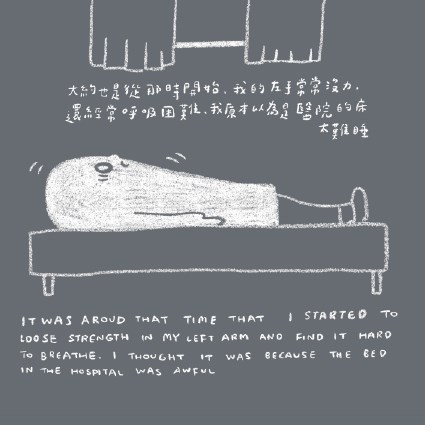 大約也是從那時開始,我的左手常常沒力,
還經常呼吸困難,我原本以為是醫院的床
太難睡
IT WAS AROUD THAT TIME THAT I STARTED TO
LOOSE STRENGTH IN MY LEFT ARM AND FIND IT HARD
TO BREATHE. I THOUGHT IT WAS BECAUSE THE BED
IN THE HOSPITAL WAS AWFUL